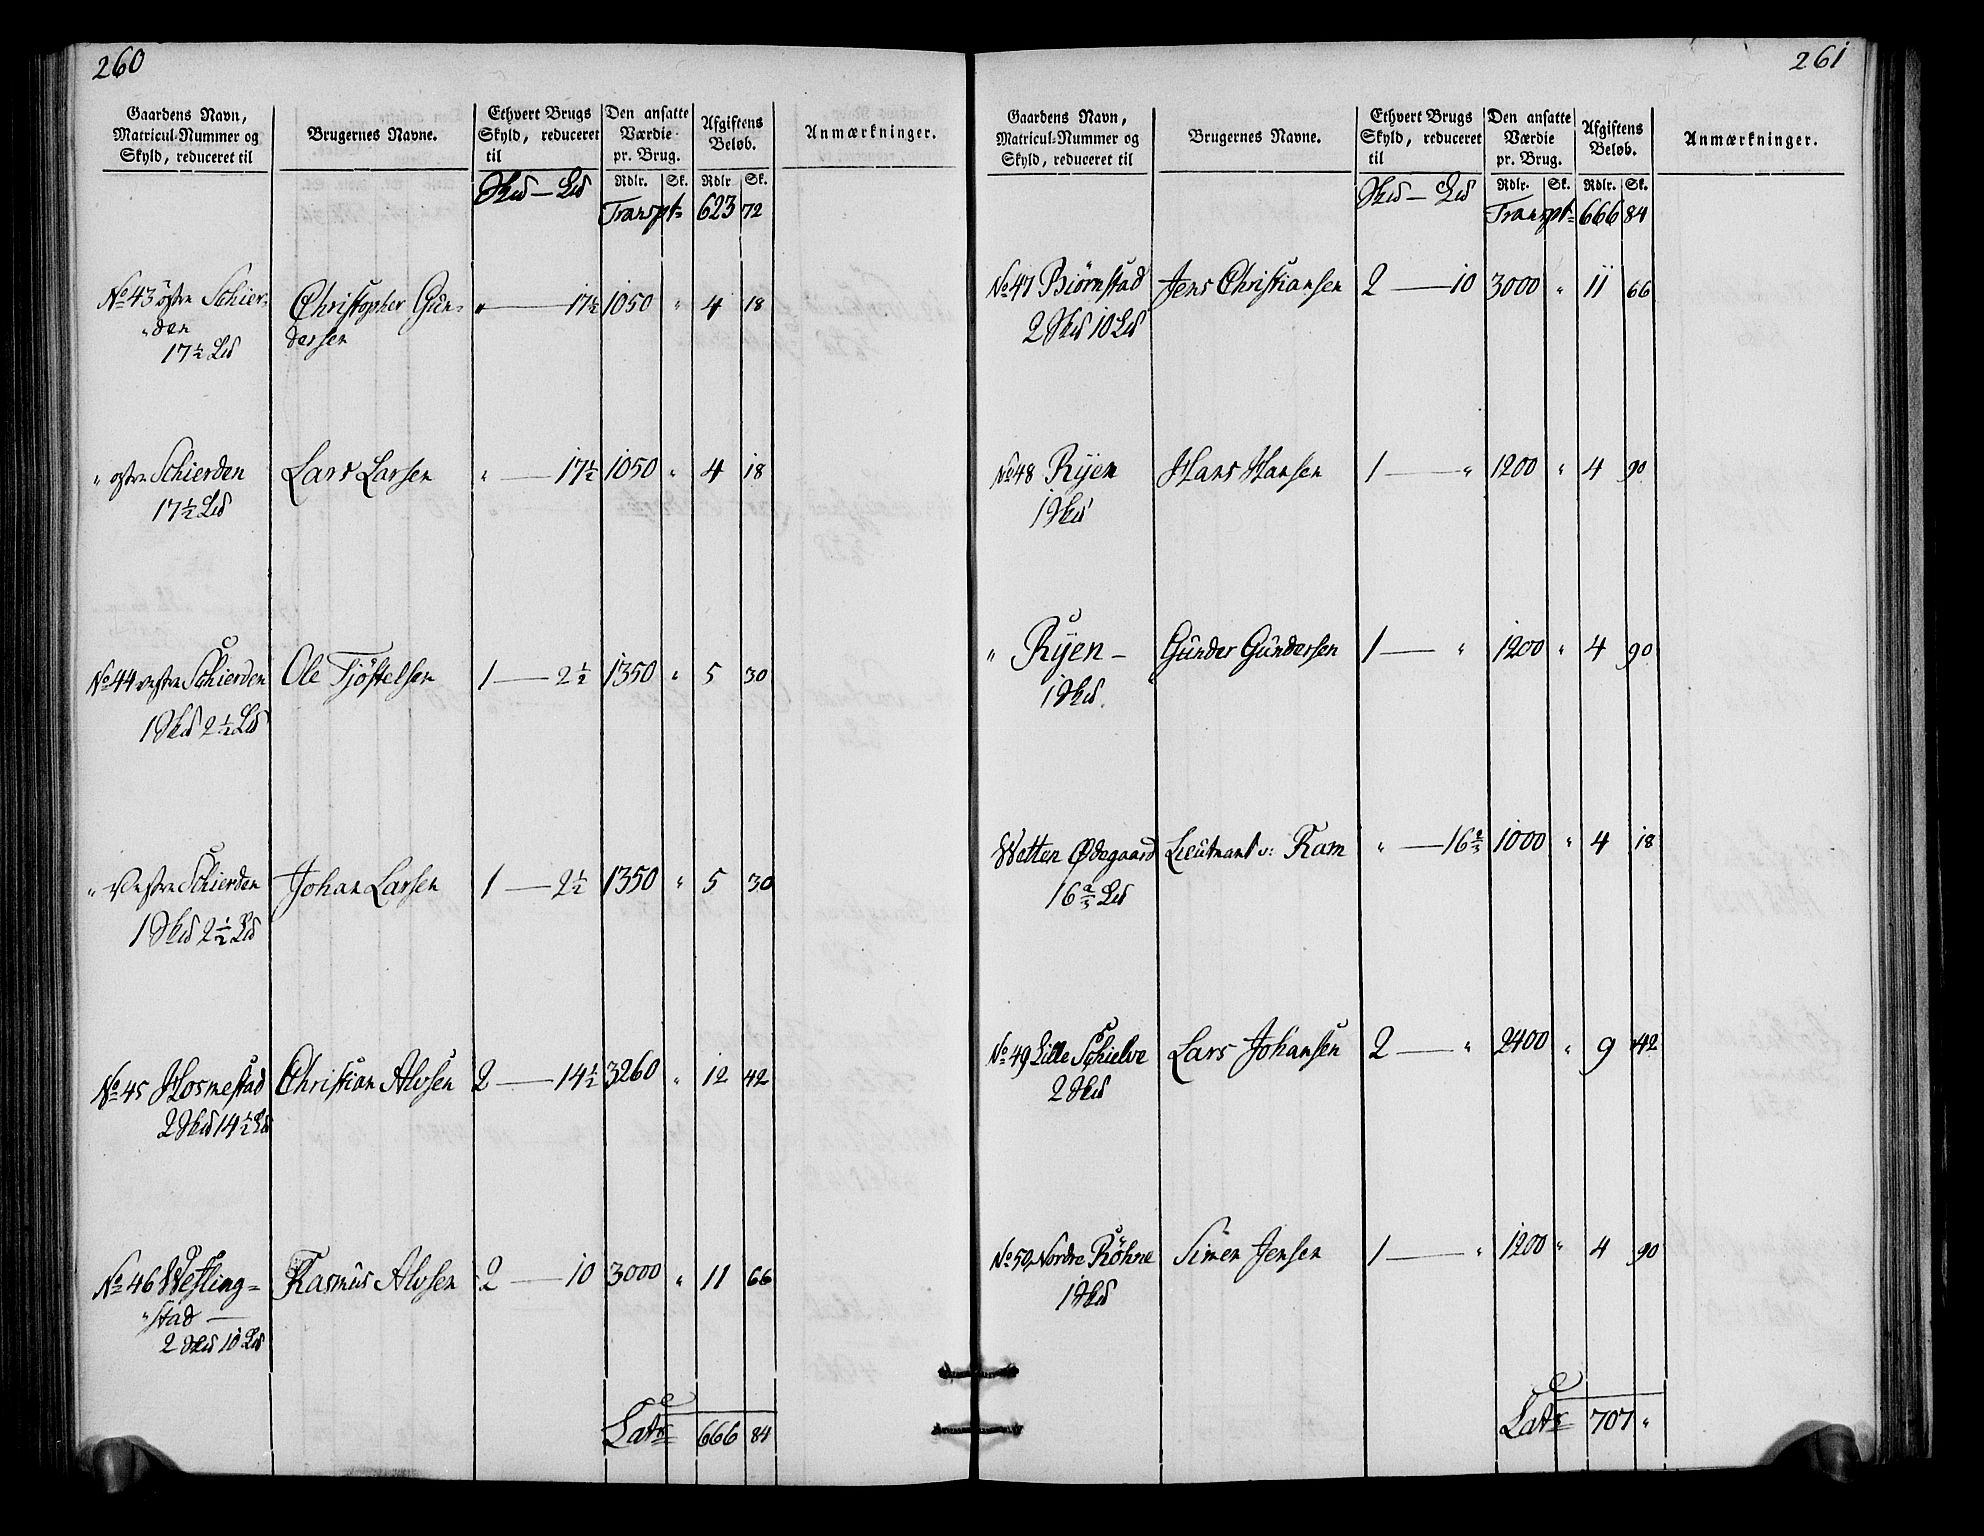 260
Gaardens Navn, Matricul-Nummer og Skyld, reduceret til
Brugernes Navne.
Ethvert Brugs Skyld, reduceret til
Den ansatte Værdie pr. Brug.
Afgiftens Beløb.
Anmærkninger.
Skd — Ld Rdlr. Sk. Rdlr Sk.
Transpt= 623 72
No 43 östre Schier= Christopher Gün= " — 17½ 1050 " 4 18
"den dersen
17½ Ld
" östre Schierden Lars Larsen " — 17½ 1050 " 4 18
17½ Ld
No 44 vestre Schierden Ole Tjöstelsen 1 — 2½ 1350 " 5 30
1 Skd 2½ Ld
" Vestre Schierden Johan Larsen 1 — 2½ 1350 " 5 30
1 Skd 2½ Ld
No 45 Hosmestad Christian Alvsen 2 — 14½ 3260 " 12 42
2 Skd 14½ Ld
No 46 Wesling= Rasmus Alvsen 2 — 10 3000 " 11 66
"stad —
2 Skd 10 Ld
Latr 666 84
261
Gaardens Navn, Matricul-Nummer og Skyld, reduceret til
Brugernes Navne.
Ethvert Brugs Skyld, reduceret til
Den ansatte Værdie pr. Brug.
Afgiftens Beløb.
Anmærkninger.
Skd — Ld Rdlr. Sk. Rdlr. Sk.
Transpt= 666 84
No 47 Biörnstad Jens Christiansen 2 — 10 3000 " 11 66
2 Skd 10 Ld
No 48 Ryen Hans Hansen 1 — " 1200 " 4 90
1 Skd
" Ryen — Gunder Gundersen 1 — " 1200 " 4 90
1 Skd.
Wetten Ødegaard Lieutnant v: Ram " — 16⅔ 1000 " 4 18
16⅔ Ld
No 49 Lille Schielve Lars Johansen 2 — " 2400 " 9 42
2 Skd
No 50, Nordre Röhne Simen Jensen 1 — " 1200 " 4 90
1 Skd
Latr 707 "